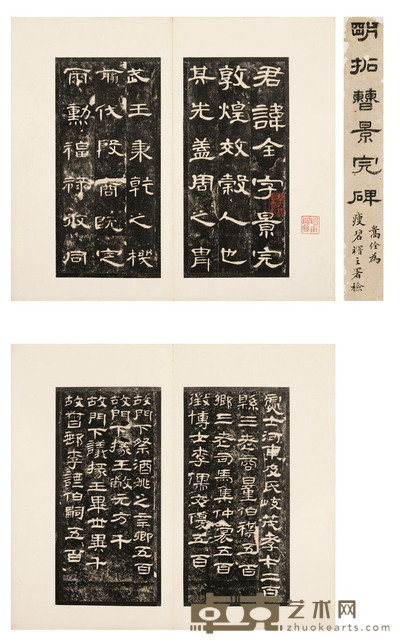 明拓曹景完碑
君諱全字景完
敦煌效穀人也
其先蓋周之胄
武王秉乾之機
翦伐殷商既定
爾勳福祿攸同
處士河東皮氏岐茂孝才二百
縣三老商量伯祺五百
鄉三老司馬集仲裳五百
徵博士李儒文優五百
故門下祭酒姚之辛卿五百
故門下掾王敞元方千
故門下議掾王畢世異千
故督郵李諲伯嗣五百
艺术网
zhuokearts.com